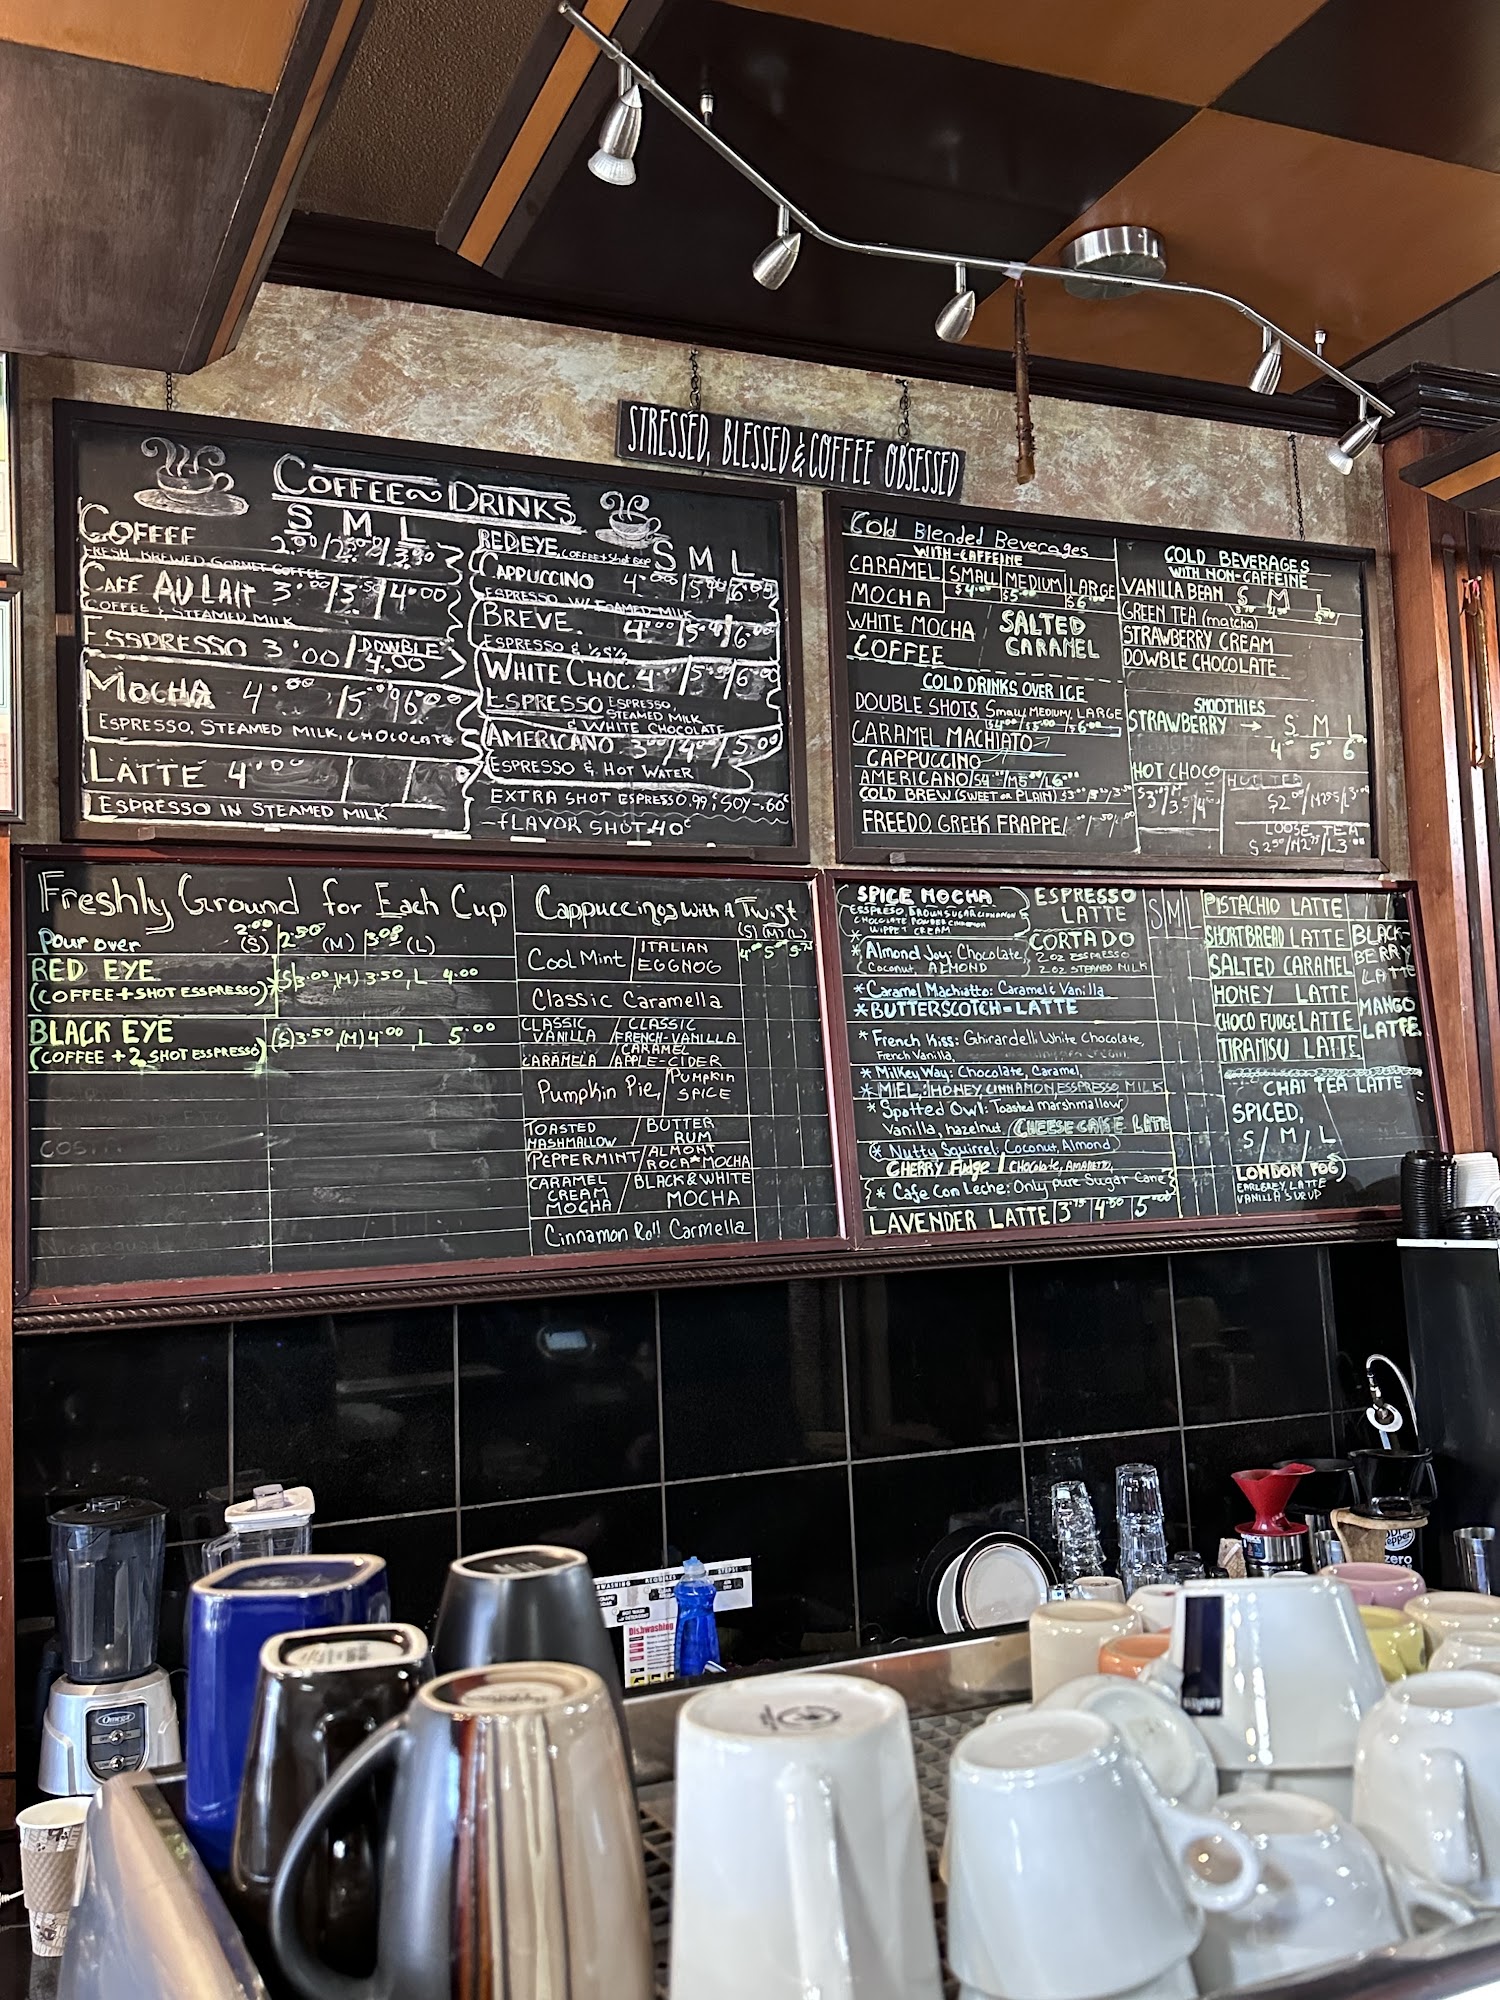 STRESSED, BLESSED & COFFEE OBSESSED
COFFEE~DRINKS
S M L
COFFEE
FRESH BREWED GORMET COFFEE
CAFÉ AU LAIT 3.00 / 3.50 / 4.00
COFFEE & STEAMED MILK
ESSPRESSO 3.00 / DOWBLE 4.00
MOCHA 4.00 / 5.00 / 6.00
ESPRESSO, STEAMED MILK, CHOCOLATE
LATTE 4.00
ESPRESSO IN STEAMED MILK
REDEYE COFFEE+Shot ESP S M L
CAPPUCCINO
ESPRESSO W/ FOAMED MILK
BREVE
ESPRESSO & ½&½
WHITE CHOC.
ESPRESSO ESPRESSO,
STEAMED MILK
& WHITE CHOCOLATE
AMERICANO 3.00 / 4.00 / 5.00
ESPRESSO & HOT WATER
EXTRA SHOT ESPRESSO .99; SOY-.60¢
-fLAVOR SHOT.40¢
Cold Blended Beverages
WITH-CAFFEINE
CARAMEL SMALL MEDIUM LARGE
MOCHA $4.00 $5.00 $6.00
WHITE MOCHA
COFFEE
SALTED
CARAMEL
COLD DRINKS OVER ICE
DOUBLE SHOTS, Small, MEDIUM, LARGE
$4.00 / $5.00 / $6.00
CARAMEL MACHIATO
CAPPUCCINO
AMERICANO/S4.00/M5.00/L6.00
COLD BREW (SWEET OR PLAIN)
FREEDO, GREEK FRAPPE
COLD BEVERAGES
WITH NON-CAFFEINE
VANILLA BEAN S M L
GREEN TEA (matcha)
STRAWBERRY CREAM
DOWBLE CHOCOLATE
SMOOTHIES
STRAWBERRY → S M L
4 5 6
HOT CHOCO
HOT TEA
LOOSE TEA
Freshly Ground for Each Cup
Pour over 2.00 (S) 2.50 (M) (L)
RED EYE
(COFFEE+SHOT ESSPRESSO) (S)3.00, (M)3.50, L 4.00
BLACK EYE
(COFFEE + 2 SHOT ESSPRESSO) (S)3.50, (M)4.00, L 5.00
Cappuccinos With A Twist
(S) (M) (L)
Cool Mint / ITALIAN
EGGNOG
Classic Caramella
CLASSIC VANILLA / CLASSIC FRENCH-VANILLA
CARAMELA / CARAMEL APPLE-CIDER
Pumpkin Pie / PUMPKIN SPICE
TOASTED MASHMALLOW / BUTTER RUM
PEPPERMINT / ALMONT ROCA*MOCHA
CARAMEL CREAM MOCHA / BLACK & WHITE MOCHA
Cinnamon Roll Carmella
SPICE MOCHA
ESPRESO, BROWN SUGAR CINNAMON &
CHOCOLATE POWDER CINNAMON
WIPPET CREAM
* Almond Joy: Chocolate,
Coconut, ALMOND
* Caramel Machiatto: Caramel & Vanilla
* BUTTERSCOTCH-LATTE
* French Kiss: Ghirardelli White Chocolate,
French Vanilla,
* Milkey Way: Chocolate, Caramel,
* MIEL: HONEY, CINNAMON, ESSPRESSO, MILK
* Spotted Owl: Toasted marshmallow
Vanilla, hazelnut. CHEESE CAKE LATTE
* Nutty Squirrel: Coconut, Almond
CHERRY Fudge / CHOCOlate, AMARETTO,
* Cafe Con Leche: Only pure Sugar Cane
LAVENDER LATTE 3.75 / 4.50 / 5.00
ESPRESSO
LATTE
CORTADO
2 OZ ESPRESSO
2 OZ STEAMED MILK
S M L
PISTACHIO LATTE
SHORTBREAD LATTE
SALTED CARAMEL
HONEY LATTE
CHOCO FUDGE LATTE
TIRAMISU LATTE
BLACK-
BERRY
LATTE
MANGO
LATTE
CHAI TEA LATTE
SPICED,
S / M / L
LONDON FOG
EARLGREY, LATTE
VANILLA SURUP
Omega
Dishwashing
pepper
zero